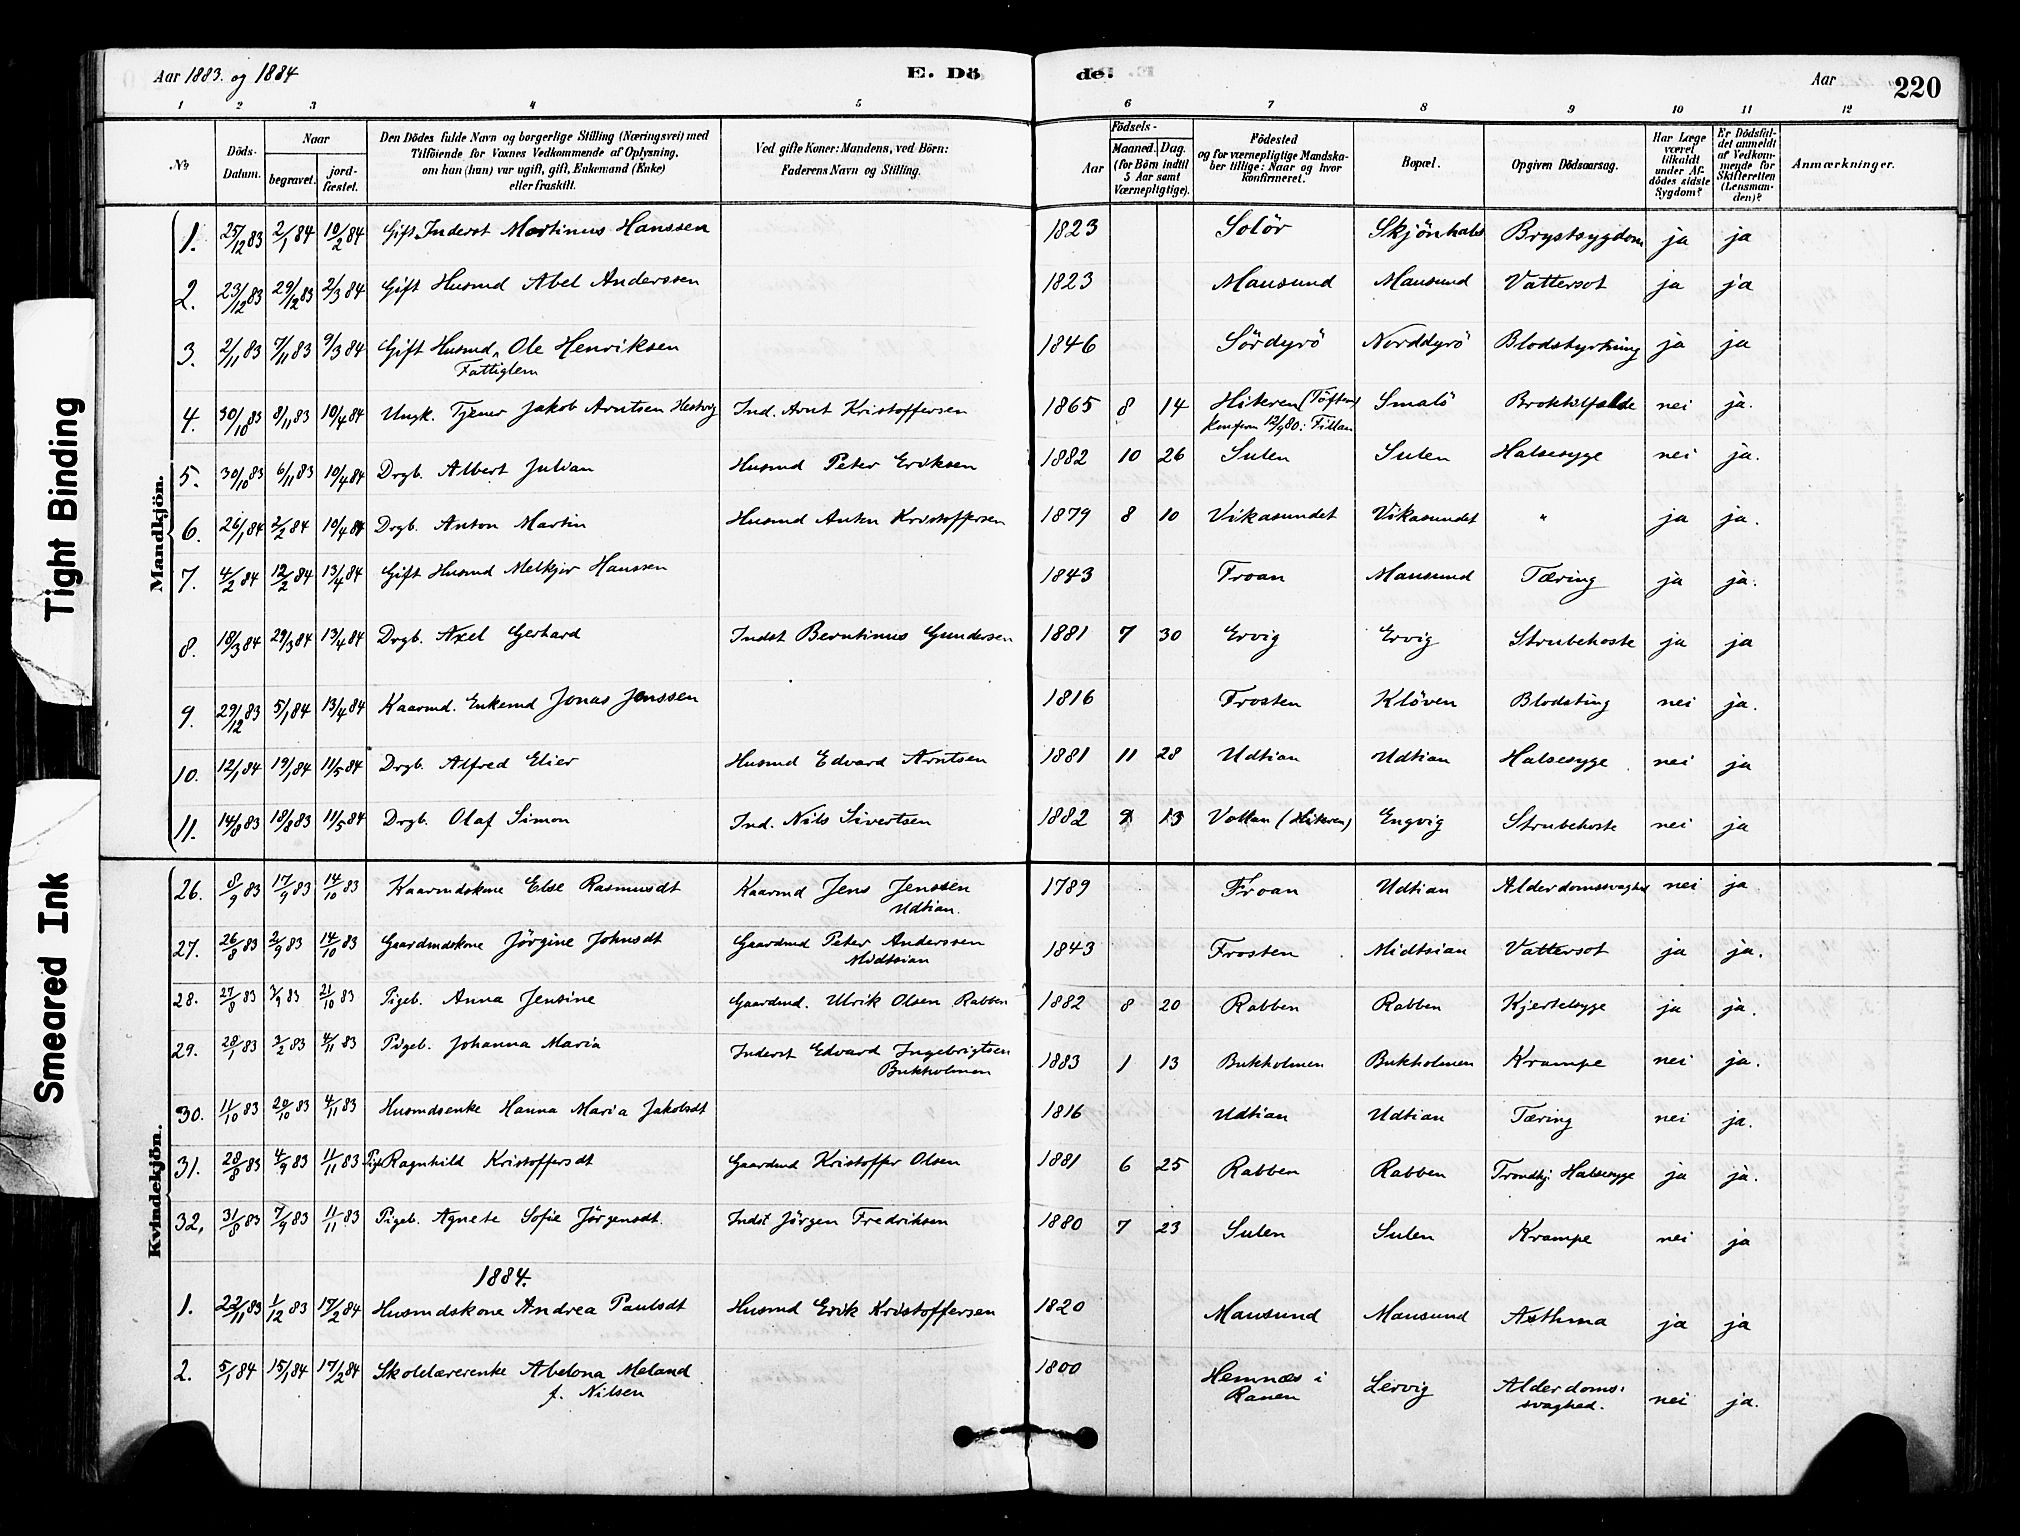 Aar 1883. og 1884
E. Döde.
Aar
220
1 2 3 4 5 6 7 8 9 10 11 12
No
Döds-Datum.
Naar
begravet.
jord-fæstet.
Den Dödes fulde Navn og borgerlige Stilling (Næringsvei) med
Tilföiende for Voxnes Vedkommende af Oplysning,
om han (hun) var ugift, gift, Enkemand (Enke)
eller fraskilt.
Ved gifte Koner: Mandens, ved Börn:
Faderens Navn og Stilling.
Födsels-
Aar
Maaned. Dag.
(for Börn indtil
5 Aar samt
Værnepligtige).
Födested
og for værnepligtige Mandska-
ber tillige: Naar og hvor
konfirmeret.
Bopæl.
Opgiven Dödsaarsag.
Har Læge
været
tilkaldt
under Af-
dödes sidste
Sygdom?
Er Dödsfal-
det anmeldt
af Vedkom-
mende for
Skifteretten
(Lensman-
den)?
Anmærkninger.
Mandkjön.
1. 25/12 83 2/1 84 10/2 84 Gift Inderst Martinus Hanssen 1823 Solör Skjönhals Brystsygdom ja ja
2. 23/12 83 29/12 83 2/3 84 Gift Husmd Abel Anderssen 1823 Mausund Mausund Vattersot ja ja
3. 2/11 83 7/11 83 9/3 84 Gift Husmd, Ole Henriksen 1846 Sördyrö Norddyrö Blodstyrtning ja ja
Fattiglem
4. 30/10 83 8/11 83 10/4 84 Ungk. Tjener Jakob Arntsen Hestvig Ind. Arnt Kristoffersen 1865 8 14 Hiteren (Töften) Smalö Broktilfælde nei ja.
Konferm 12/9 80: Fillan
5. 30/10 83 6/11 83 10/4 84 Drgb. Albert Julian Husmd Peter Eriksen 1882 10 26 Sulen Sulen Halsesyge nei ja.
6. 26/1 84 2/2 84 10/4 84 Drgb. Anton Martin Husmd Anton Kristoffersen 1879 8 10 Vikasundet Vikasundet " ja ja.
7. 4/2 84 12/2 84 13/4 84 Gift Husmd Melkjor Hanssen 1843 Froan Mausund Tæring ja ja.
8. 18/3 84 29/3 84 13/4 84 Drgb. Axel Gerhard Indst Berntinus Gundersen 1881 7 30 Ervig Ervig Strubehoste ja ja
9. 29/12 83 5/1 84 13/4 84 Kaarmd. Enkemd Jonas Jenssen 1816 Frosten Klöven Blodsting nei ja.
10. 12/1 84 19/1 84 11/5 84 Drgb. Alfred Elier Husmd Edvard Arntsen 1881 11 28 Udtian Udtian Halsesyge nei ja
11. 14/8 83 18/8 83 11/5 84 Drgb. Olaf Simon Ind. Nils Sivertsen 1882 9 13 Vollan (Hiteren) Engvig Strubehoste nei ja
Kvindekjön.
26. 8/9 83 17/9 83 14/10 83 Kaarmdskone Else Rasmusdt Kaarmd Jens Jenssen 1789 Froan Udtian Alderdomssvaghed nei ja
Udtian.
27. 26/8 83 2/9 83 14/10 83 Gaardmdskone Jörgine Johnsdt Gaardmd Peter Anderssen 1843 Frosten Midtsian Vattersot ja ja.
Midtsian
28. 27/8 83 2/9 83 21/10 83 Pigeb. Anna Jensine Gaardmd. Ulrik Olsen Rabben 1882 8 20 Rabben Rabben Kjertelsyge ja ja.
29. 28/1 83 3/2 83 4/11 83 Pigeb. Johanna Maria Inderst Edvard Ingebrigtsen 1883 1 13 Bukholmen Bukholmen Krampe nei ja.
Bukholmen
30. 11/10 83 20/10 83 4/11 83 Husmdsenke Hanna Maria Jakobsdt 1816 Udtian Udtian Tæring nei ja.
31. 28/8 83 4/9 83 11/11 83 Pig. Ragnhild Kristoffersdt Gaardmd Kristoffer Olsen 1881 6 25 Rabben Rabben Trondhj. Halsesyge ja ja.
32. 31/8 83 7/9 83 11/11 83 Pigeb. Agnete Sofie Jörgensdt. Indst Jörgen Fredriksen 1880 7 23 Sulen Sulen Krampe nei ja
1884.
1. 22/11 83 1/12 83 17/2 84 Husmdskone Andrea Paulsdt Husmd Erik Kristoffersen 1820 Mausund Mausund Asthma ja ja
2. 5/1 84 15/1 84 17/2 84 Skolelærerenke Abelona Meland 1800 Hemnæs i Leirvig Alderdoms:
f. Nilsen Ranen svaghed. nei ja.
Tight Binding
Smeared Ink